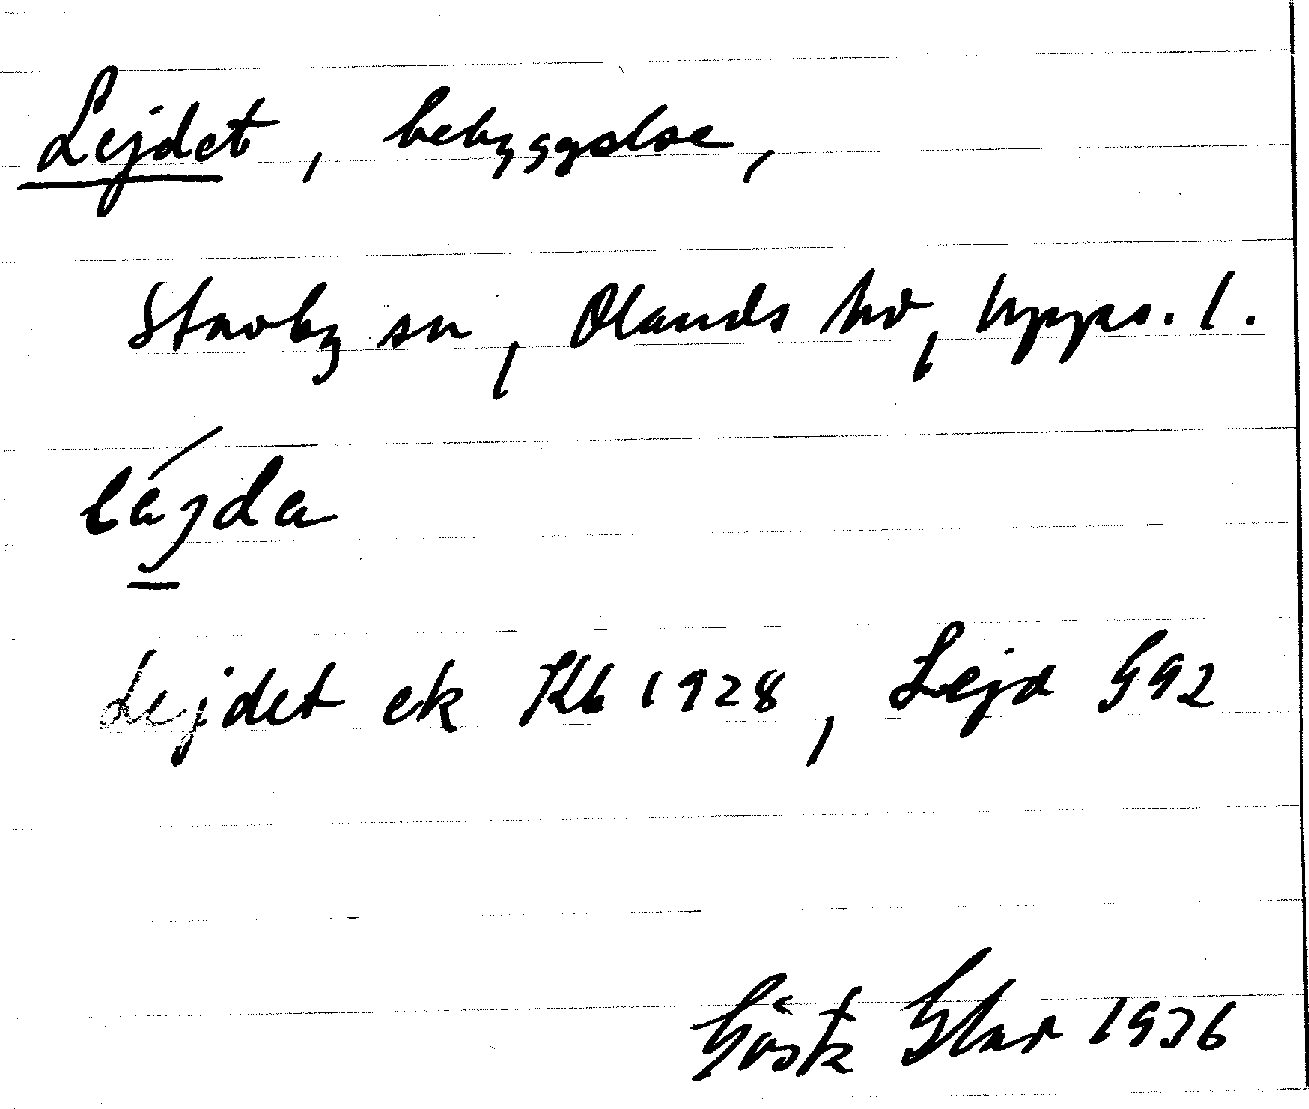 Lejdet, bebyggelse,
Stavby sn, Olands hd, Upps. l.
lájda
Lejdet ek Kb 1928, Lejd G92
Gösta 1936